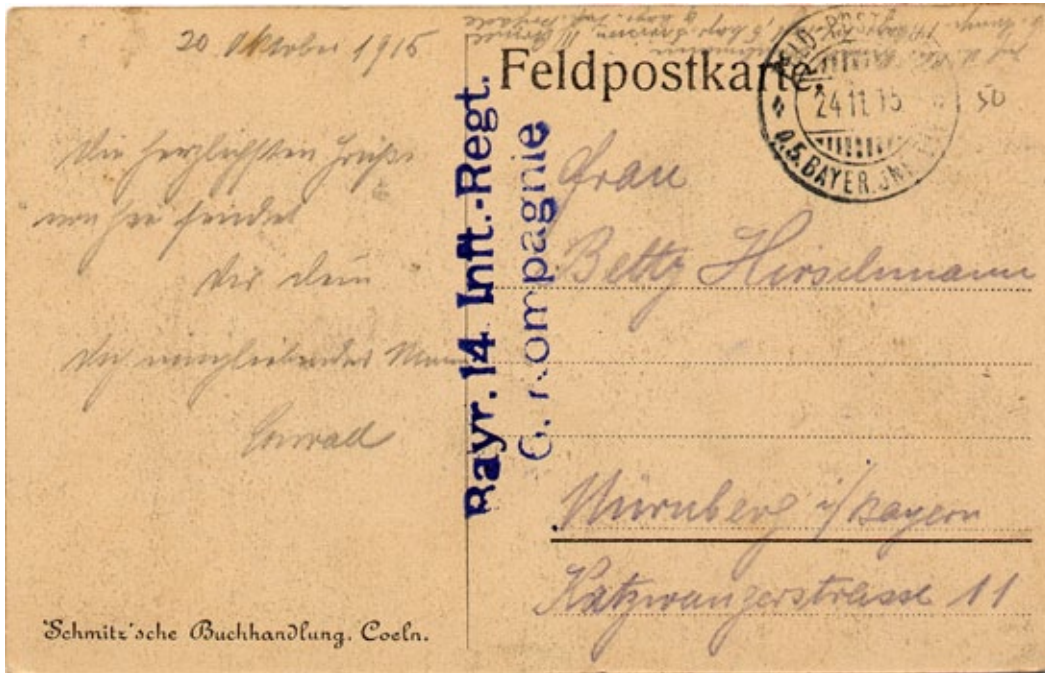 20 Oktober 1915
Die herzlichsten Grüße
von hier sendet
Dir dein
Dich innigliebender Mann
Conrad
Schmitz'sche Buchhandlung. Coeln.
Bayr. 14. Inft.-Regt.
6. Kompagnie
Feldpostkarte.
FELD-POST
24 11 15
D.5.BAYER.INF.
50
Frau
Betty Hirschmann
Nürnberg i/Bayern
Katzwangerstrasse 11